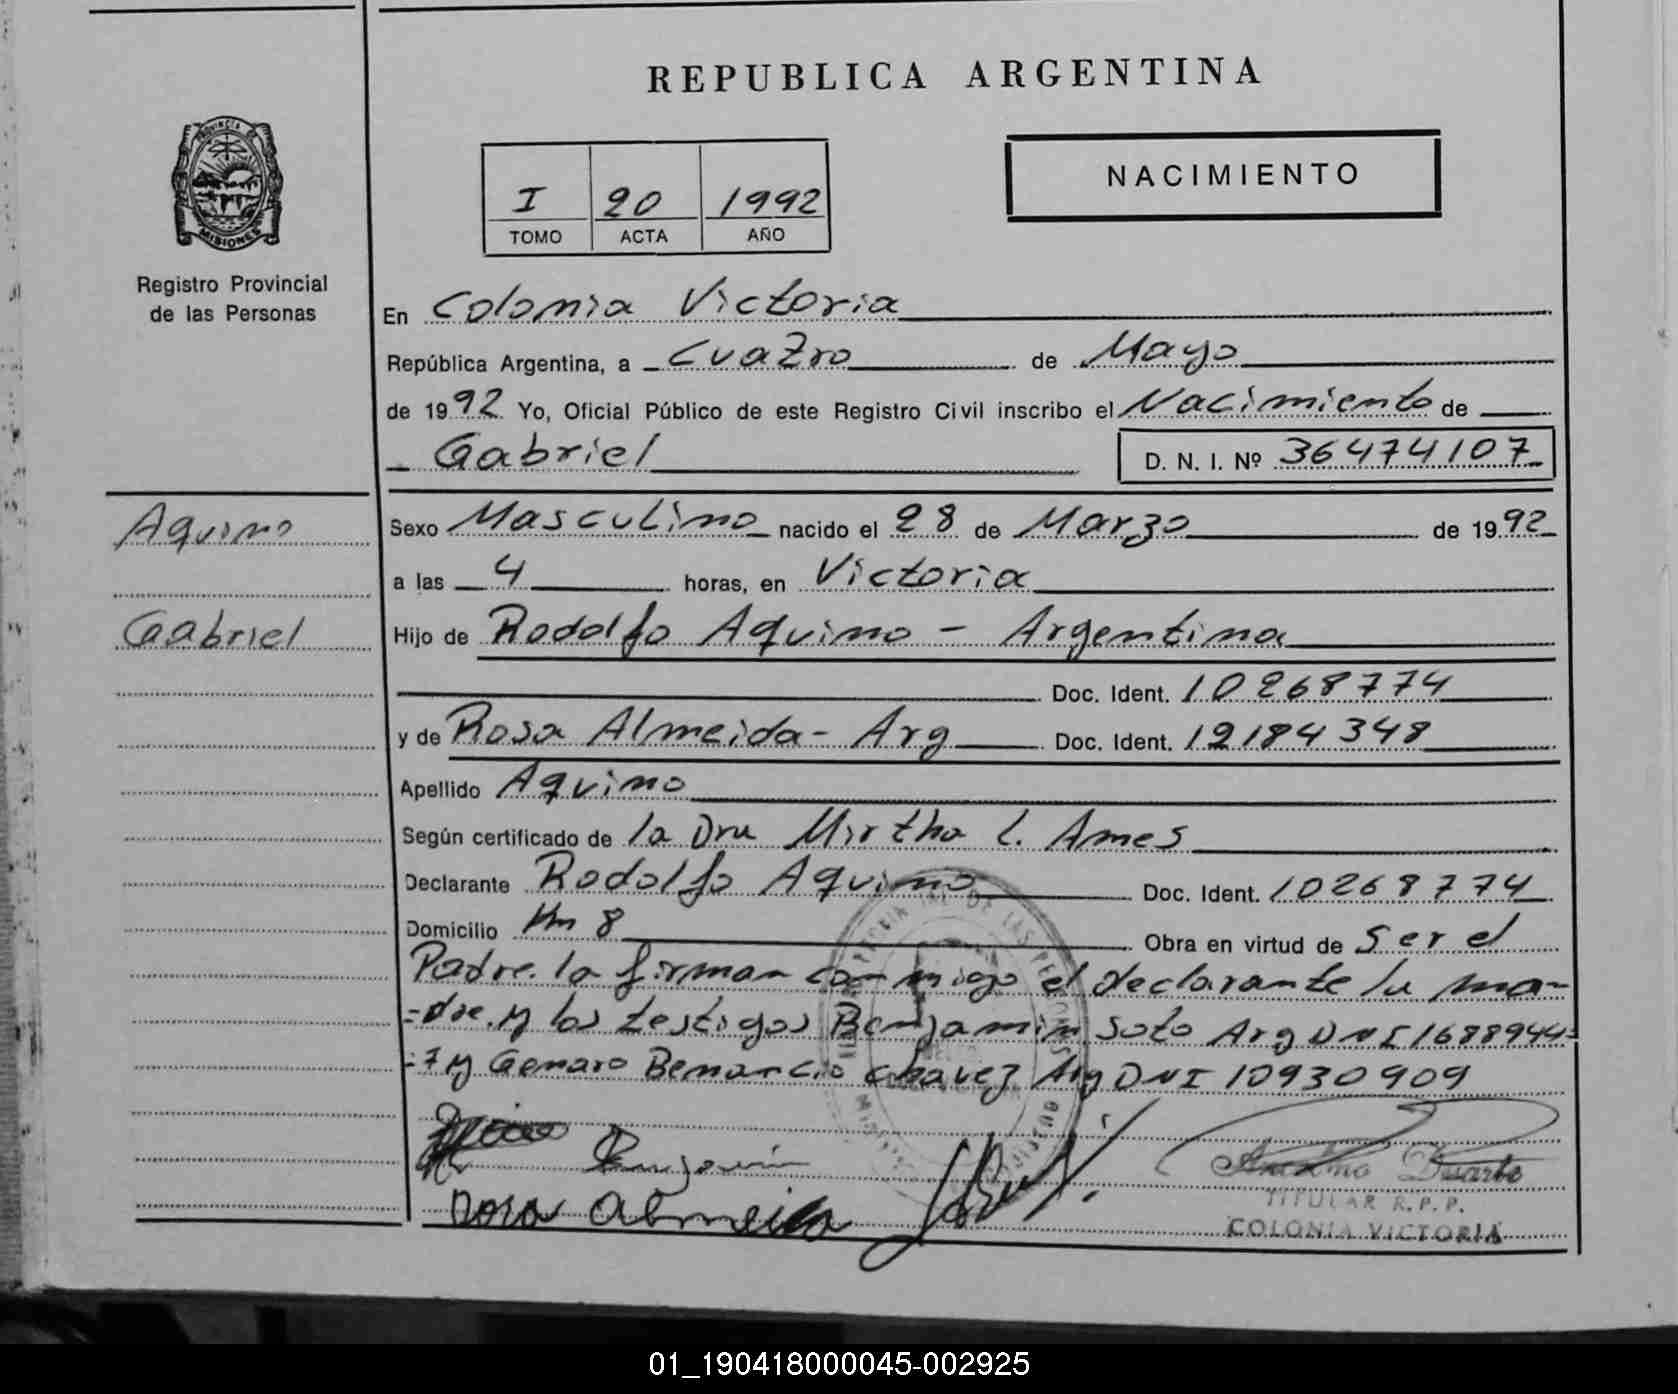 REPUBLICA ARGENTINA
PROVINCIA DE
MISIONES
Registro Provincial
de las Personas
I 20 1992
TOMO ACTA AÑO
NACIMIENTO
En Colonia Victoria
República Argentina, a Cuatro de Mayo
de 1992 Yo, Oficial Público de este Registro Civil inscribo el Nacimiento de
Gabriel D. N. I. Nº 36474107
Aquino
Gabriel
Sexo Masculino nacido el 28 de Marzo de 1992
a las 4 horas, en Victoria
Hijo de Rodolfo Aquino - Argentina
Doc. Ident. 10268774
y de Rosa Almeida - Arg Doc. Ident. 12184348
Apellido Aquino
Según certificado de la Dra Mirtha L. Ames
Declarante Rodolfo Aquino Doc. Ident. 10268774
Domicilio Km 8 Obra en virtud de Ser el
Padre. la firman conmigo el declarante la ma-
=dre. y los testigos Benjamin Soto Arg DNI 1688944=
=7 y Genaro Benancio Chavez Arg DNI 10930909
Benjamin
Rosa Almeida
Anselmo Duarte
TITULAR R.P.P.
COLONIA VICTORIA
01_190418000045-002925